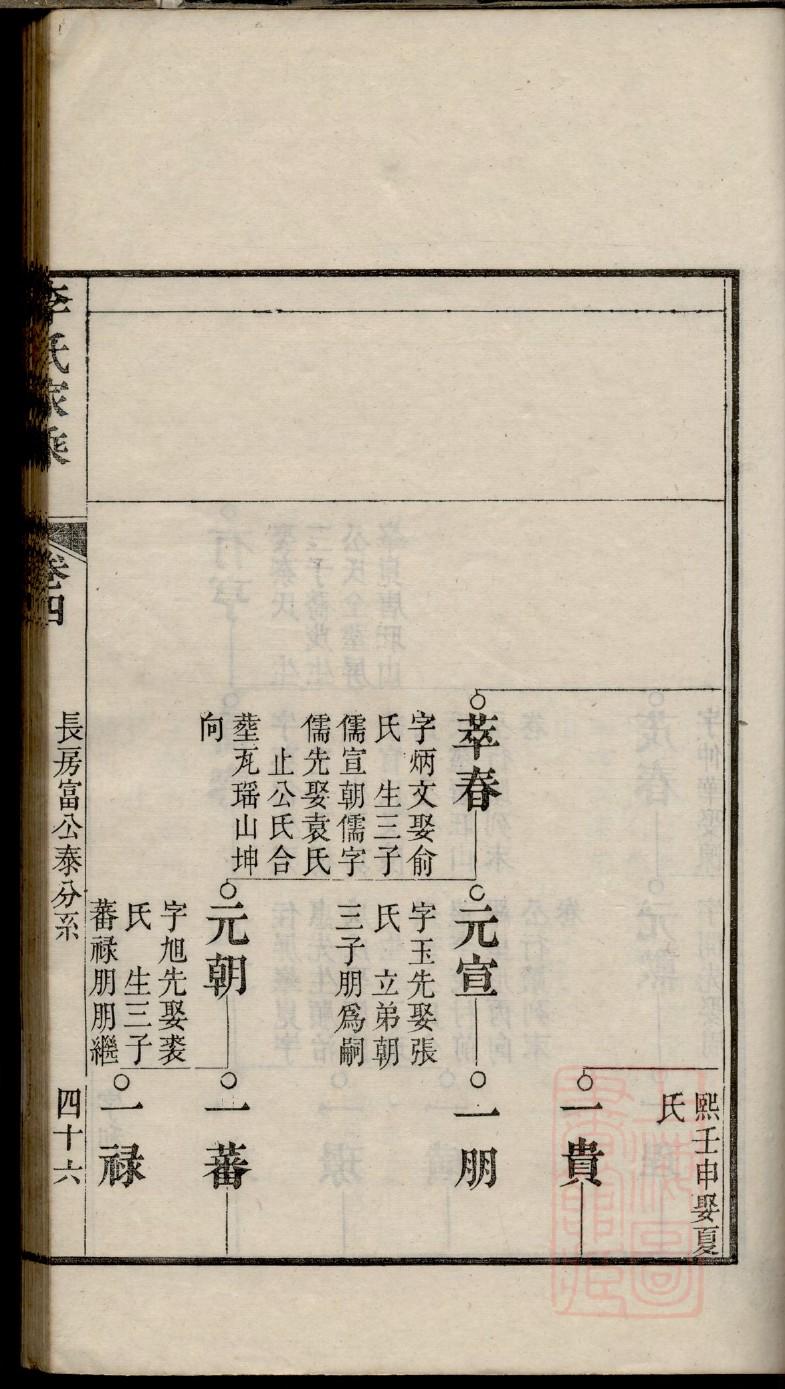 熙壬申娶夏
氏
一貴
萃春
字炳文娶俞
氏　生三子
儒宣朝儒字
儒先娶袁氏
止公氏合
塟瓦瑶山坤
向
元宣
字玉先娶張
氏　立弟朝
三子朋爲嗣
一朋
元朝
字旭先娶裘
氏　生三子
蕃祿朋朋繼
一蕃
一祿
李氏家乘
卷四
長房富公泰分系
四十六